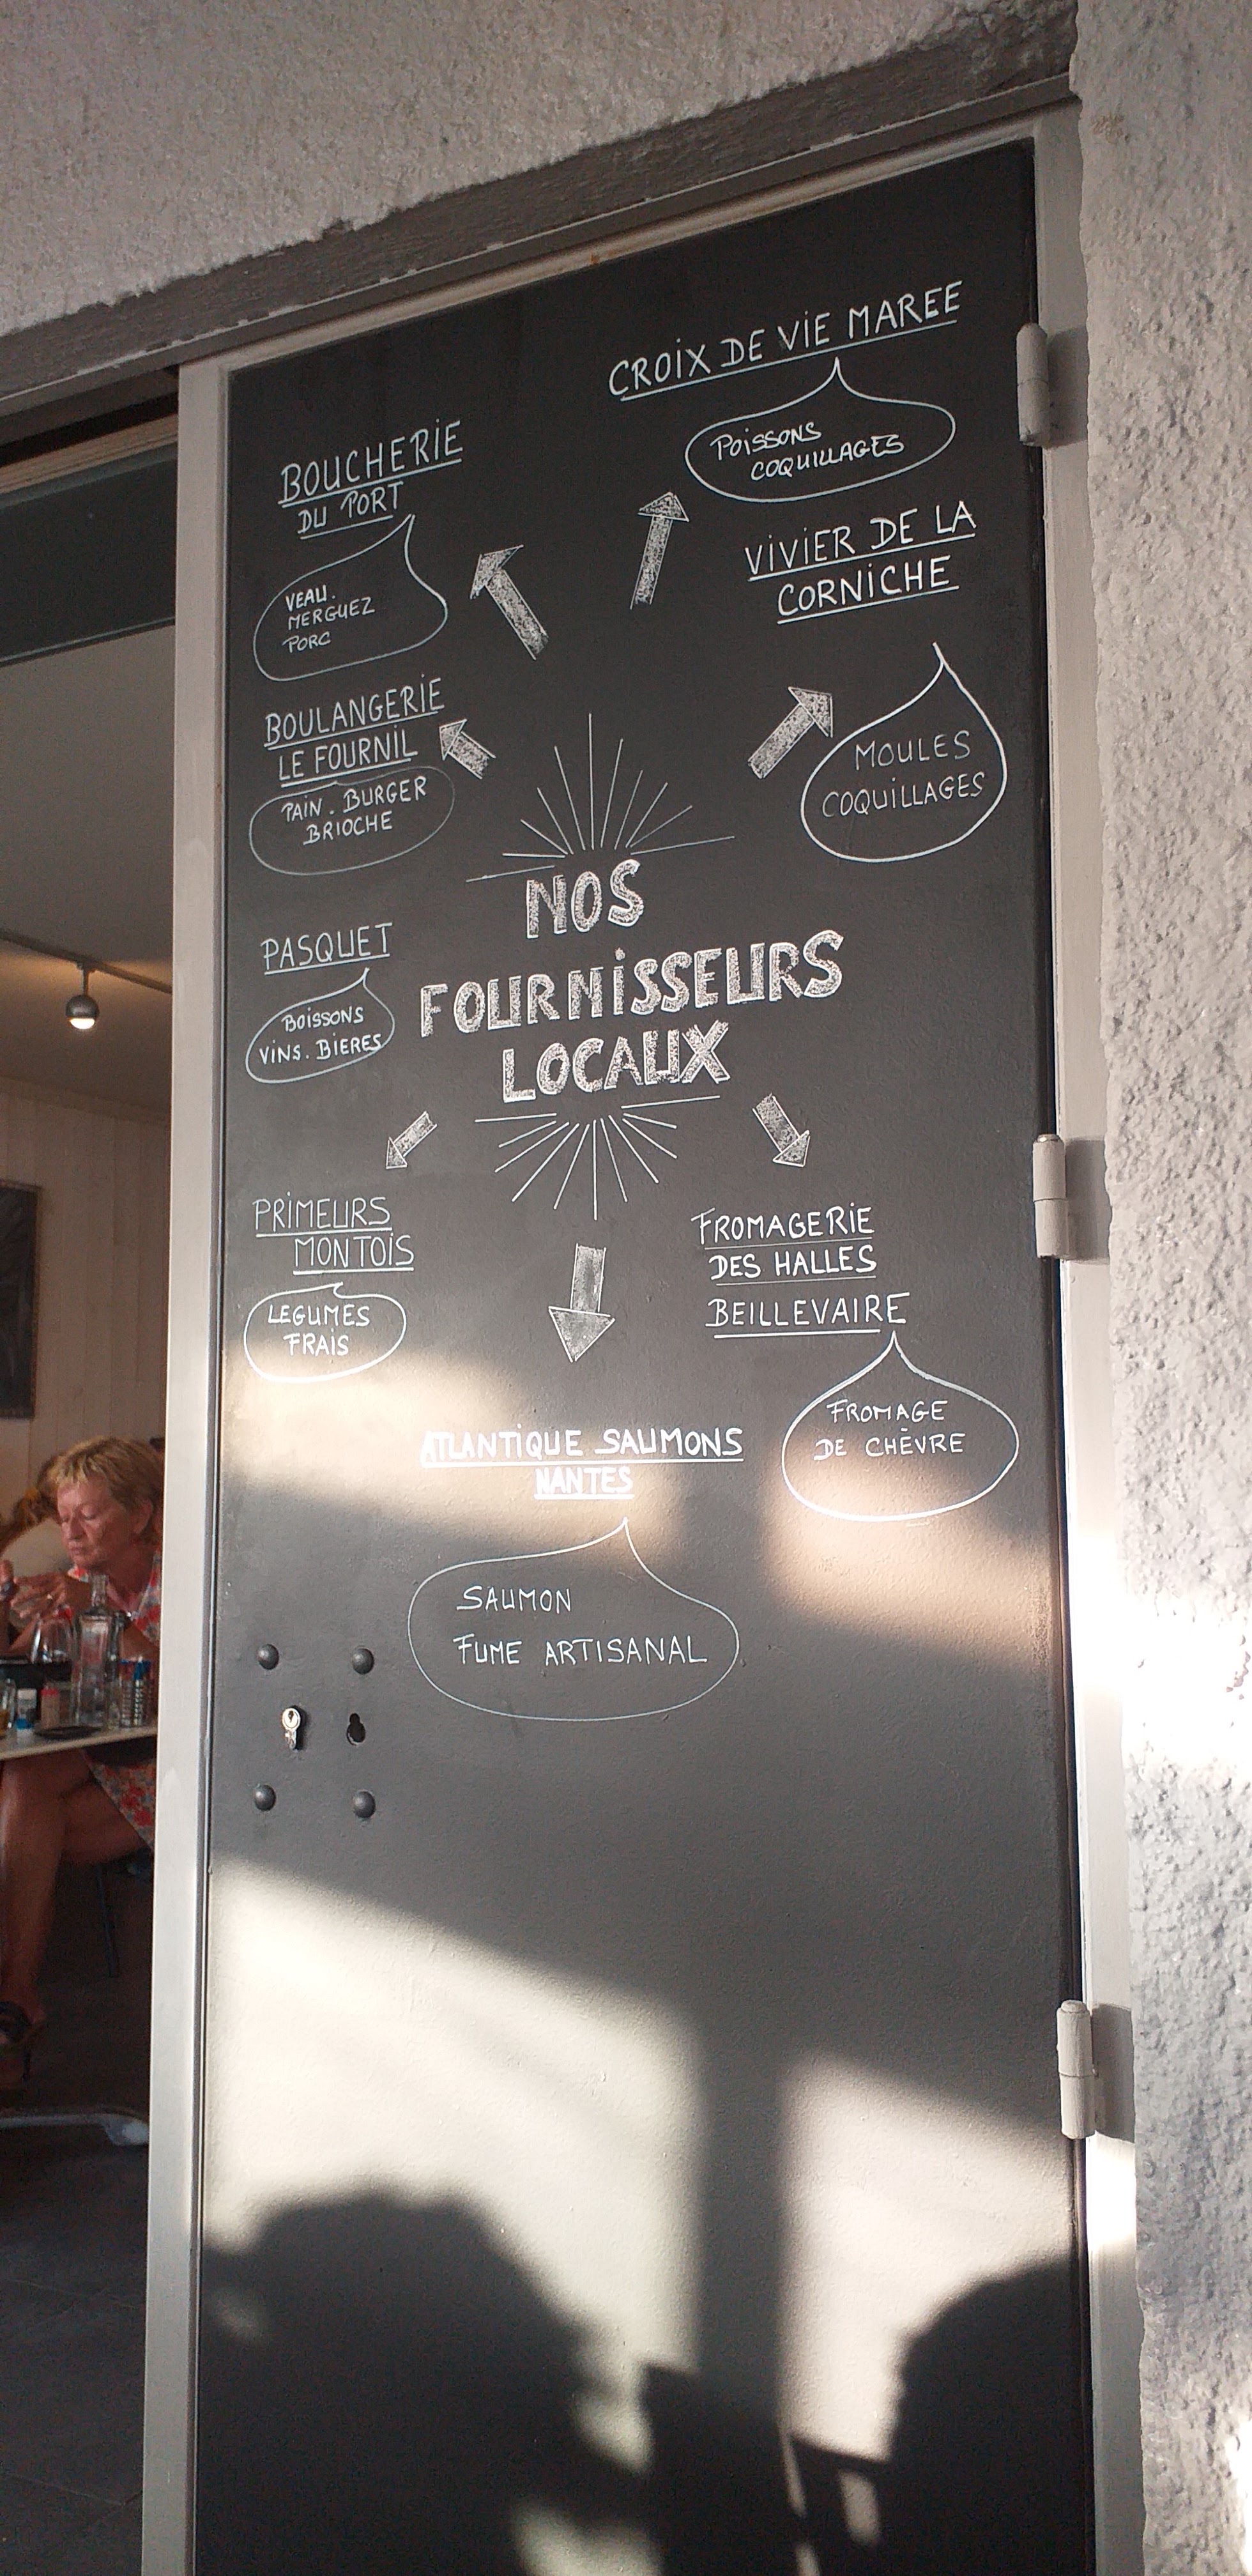 CROIX DE VIE MAREE
POISSONS
COQUILLAGES
BOUCHERIE
DU PORT
VEAU.
MERGUEZ
PORC
VIVIER DE LA
CORNICHE
MOULES
COQUILLAGES
BOULANGERIE
LE FOURNIL
PAIN. BURGER
BRIOCHE
NOS
FOURNISSEURS
LOCAUX
PASQUET
BOISSONS
VINS. BIERES
PRIMEURS
MONTOIS
LEGUMES
FRAIS
FROMAGERIE
DES HALLES
BEILLEVAIRE
FROMAGE
DE CHÈVRE
ATLANTIQUE SAUMONS
NANTES
SAUMON
FUME ARTISANAL